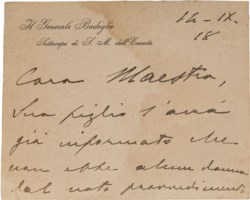 Il Generale Badoglio
Sottocapo di S. M. dell'Esercito
14-IX-
18
Caro Maestro,
Suo figlio l'avrà
già informato che
non ebbe alcun danno
dal noto provvedimento